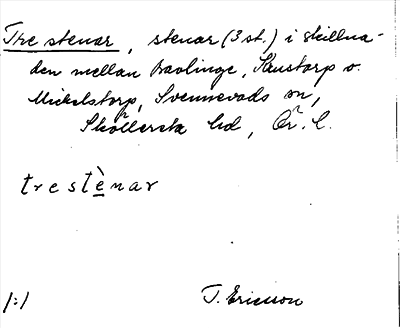 Tre stenar, stenar (3 st.) i skillna-
den mellan Bavlinge, Krustorp o.
Mickelstorp, Svennevads sn,
Sköllersta hd, Ör. l.
trestènar
/:/ T. Ericsson